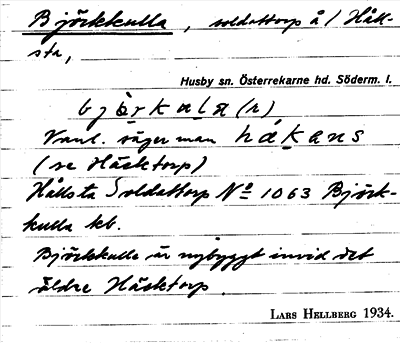 Björkkulla, soldattorp å / Håll-
sta,
Husby sn. Österrekarne hd. Söderm. l.
bjòrkula (n)
Vanl. säger man hákans
(se Häcktorp)
Hållsta Soldattorp No 1063 Björk-
kulla kb.
Björkkulla är nybyggt invid det
äldre Häcktorp.
LARS HELLBERG 1934.